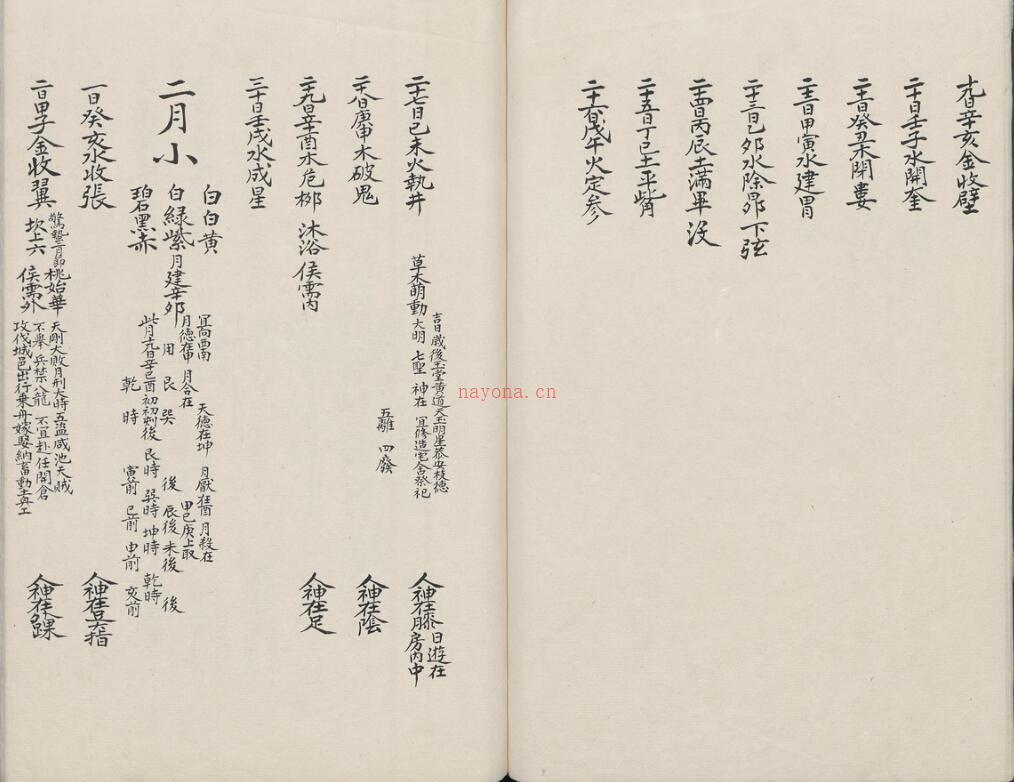 十九日辛亥金收壁
二十日壬子水開奎
二十一日癸丑木閉婁
二十二日甲寅水建胃
二十三日乙卯水除昴下弦
二十四日丙辰土滿畢没
二十五日丁巳土平觜
二十六日戊午火定参
二十七日己未火執井
草木萌動
吉日歳後玉堂黄道天玉明星恭安枝德
大明 七聖 神在 宜修造宅舍祭祀
人神在膝
日遊在
房内中
二十八日庚申木破鬼
五離 四廢
人神在陰
二十九日辛酉木危柳 沐浴 侯需内
人神在足
三十日壬戌水成星
二月小
白白黄
白緑紫
碧黒赤
月建辛卯
宜向西南 天德在坤 月厭在酉 月殺在
月德在甲 月合在 甲巳庚上取
用艮巽 後 辰後 未後 後
此月十九日辛巳酉初初刻後 艮時 巽時 坤時 乾時
乾時 寅前 巳前 申前 亥前
一日癸亥水收張
人神在足大指
二日甲子金收翼
驚蟄二月節
坎上六
桃始華
侯需外
天剛大敗月刑大時五盗咸池天賊
不舉 兵禁 八龍 不宜赴任開倉
攻伐城邑出行乗舟嫁娶納畜動土興工
人神在踝
nayona.cn